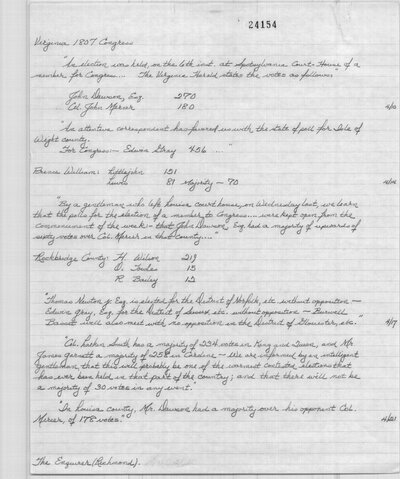 24154
Virginia 1807 Congress
"An election was held, on the 6th inst. at Spotsylvania Court House of a
member for Congress.... The Virginia Herald states the votes as follows:"
John Dawson, Esq. 270
Col. John Mercer 180 4/10
"An attentive correspondent has favored us with the state of poll for Isle of
Wight county.
For Congress:— Edwin Gray 456 ...."
Prince William: Littlejohn 151
Lewis 81 Majority — 70 4/14
"By a gentleman who left Louisa court house, on Wednesday last, we learn
that the polls for the election of a member to Congress.... were kept open from the
commencement of the week — that John Dawson, Esq. had a majority of upwards of
sixty votes over Col. Mercer in that County...."
Rockbridge County: A. Wilson 219
O. Towles 15
R. Bailey 12
"Thomas Newton Jr. Esq. is elected for the District of Norfolk, etc. without opposition —
Edwin Gray, Esq. for the District of Sussex etc. without opposition — Burwell
Bassett will also meet with no opposition in the District of Gloucester, etc." 4/17
"Col. Larkin Smith has a majority of 224 votes in King and Queen, and Mr.
James Garnett a majority of 258 in Caroline — We are informed by an intelligent
gentleman, that this will probably be one of the warmest contested elections that
has ever been held in that part of the country; and that there will not be
a majority of 30 votes in any event."
"In Louisa county, Mr. Dawson had a majority over his opponent Col.
Mercer, of 178 votes." 4/21
The Enquirer (Richmond).